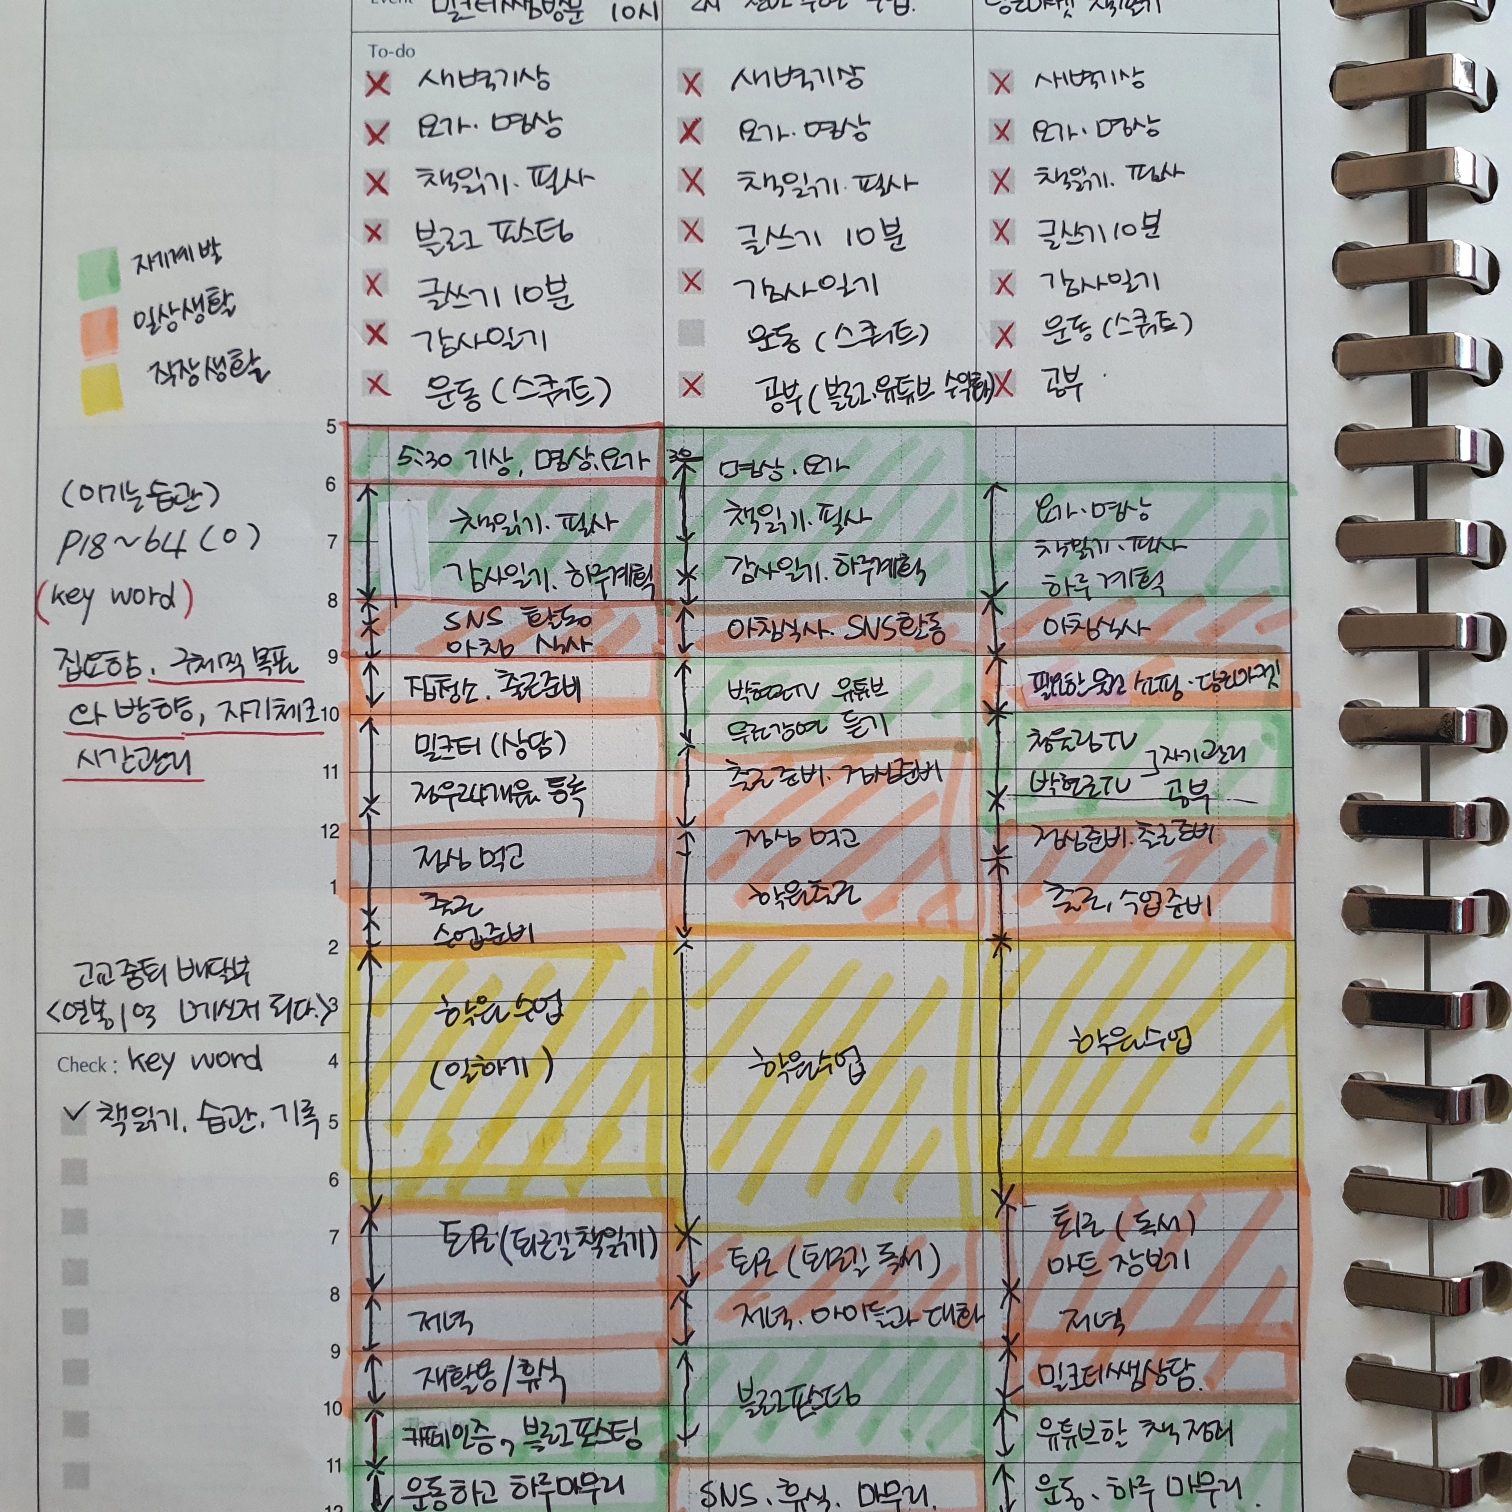 Event 밀크티쌤방문 10시
당근마켓 책팔기
To-do
새벽기상
요가·명상
책읽기·필사
블로그 포스팅
글쓰기 10분
감사일기
운동 (스쿼트)
새벽기상
요가·명상
책읽기·필사
글쓰기 10분
감사일기
운동 (스쿼트)
공부 (블로그·유튜브
새벽기상
요가·명상
책읽기·필사
글쓰기 10분
감사일기
운동 (스쿼트)
공부
자기계발
일상생활
직장생활
(이기는습관)
P18~64 (0)
(key word)
집요함. 구체적 목표
와 방향, 자기체크
시간관리
고교중퇴 배달부
<연봉1억 되다.>
Check : key word
책읽기, 습관, 기록
5
6
7
8
9
10
11
12
1
2
3
4
5
6
7
8
9
10
11
12
5:30 기상, 명상.요가
책읽기·필사
감사일기. 하루계획
SNS 활동
아침 식사
집청소. 출근준비
밀크티 (상담)
정우 24개월 등록
점심 먹고
출근
수업준비
학원수업
(일하기)
퇴근 (퇴근길 책읽기)
저녁
재활용/휴식
카페인증, 블로그포스팅
운동하고 하루마무리
30분
명상·요가
책읽기·필사
감사일기. 하루계획
아침식사. SNS활동
박현근TV 유튜브
무료강연 듣기
출근준비·점심준비
점심 먹고
학원출근
학원수업
퇴근 (퇴근길 독서)
저녁. 아이들과 대화
블로그포스팅
SNS. 휴식. 마무리.
요가·명상
책읽기·필사
하루 계획
아침식사
필요한물건 쇼핑·당근마켓
청울림TV
박현근TV
자기관리
공부
점심준비·출근준비
출근, 수업준비
학원수업
퇴근 (독서)
마트 장보기
저녁
밀크티쌤상담.
유튜브할 책 정리
운동. 하루 마무리.